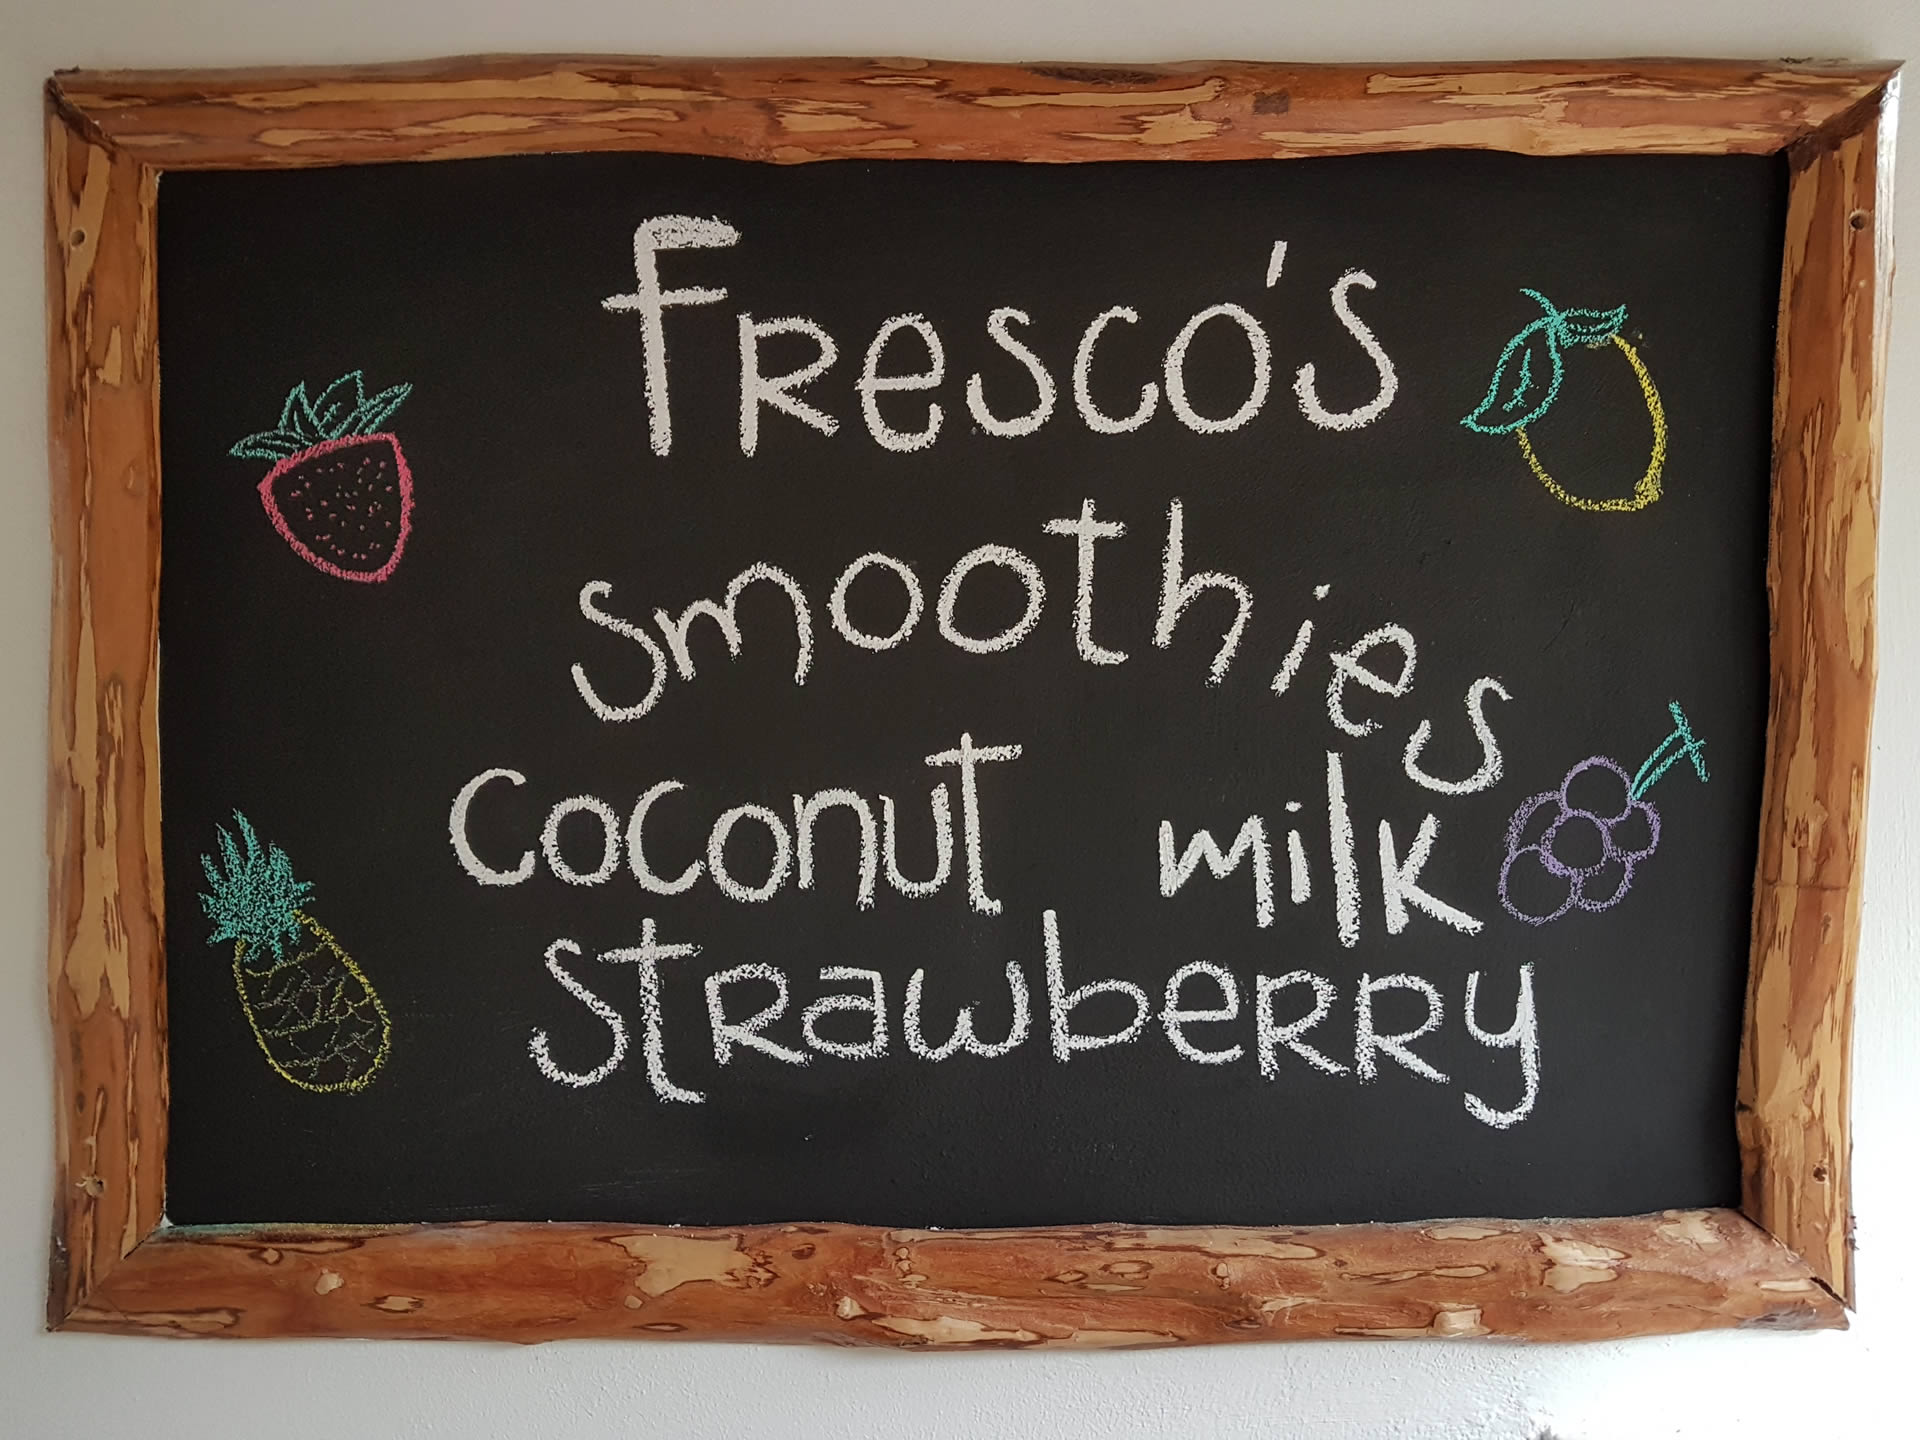 Fresco's
smoothies
coconut milk
strawberry